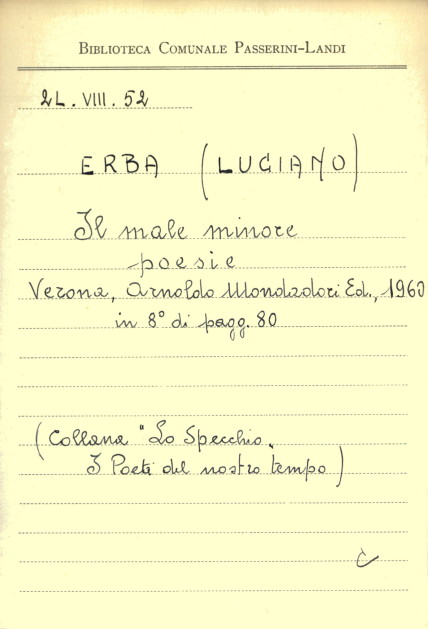 BIBLIOTECA COMUNALE PASSERINI-LANDI
2L. VIII. 52
ERBA (LUCIANO)
Il male minore
poesie
Verona, Arnoldo Mondadori Ed., 1960
in 8° di pagg. 80
(Collana "Lo Specchio.
I Poeti del nostro tempo)
C